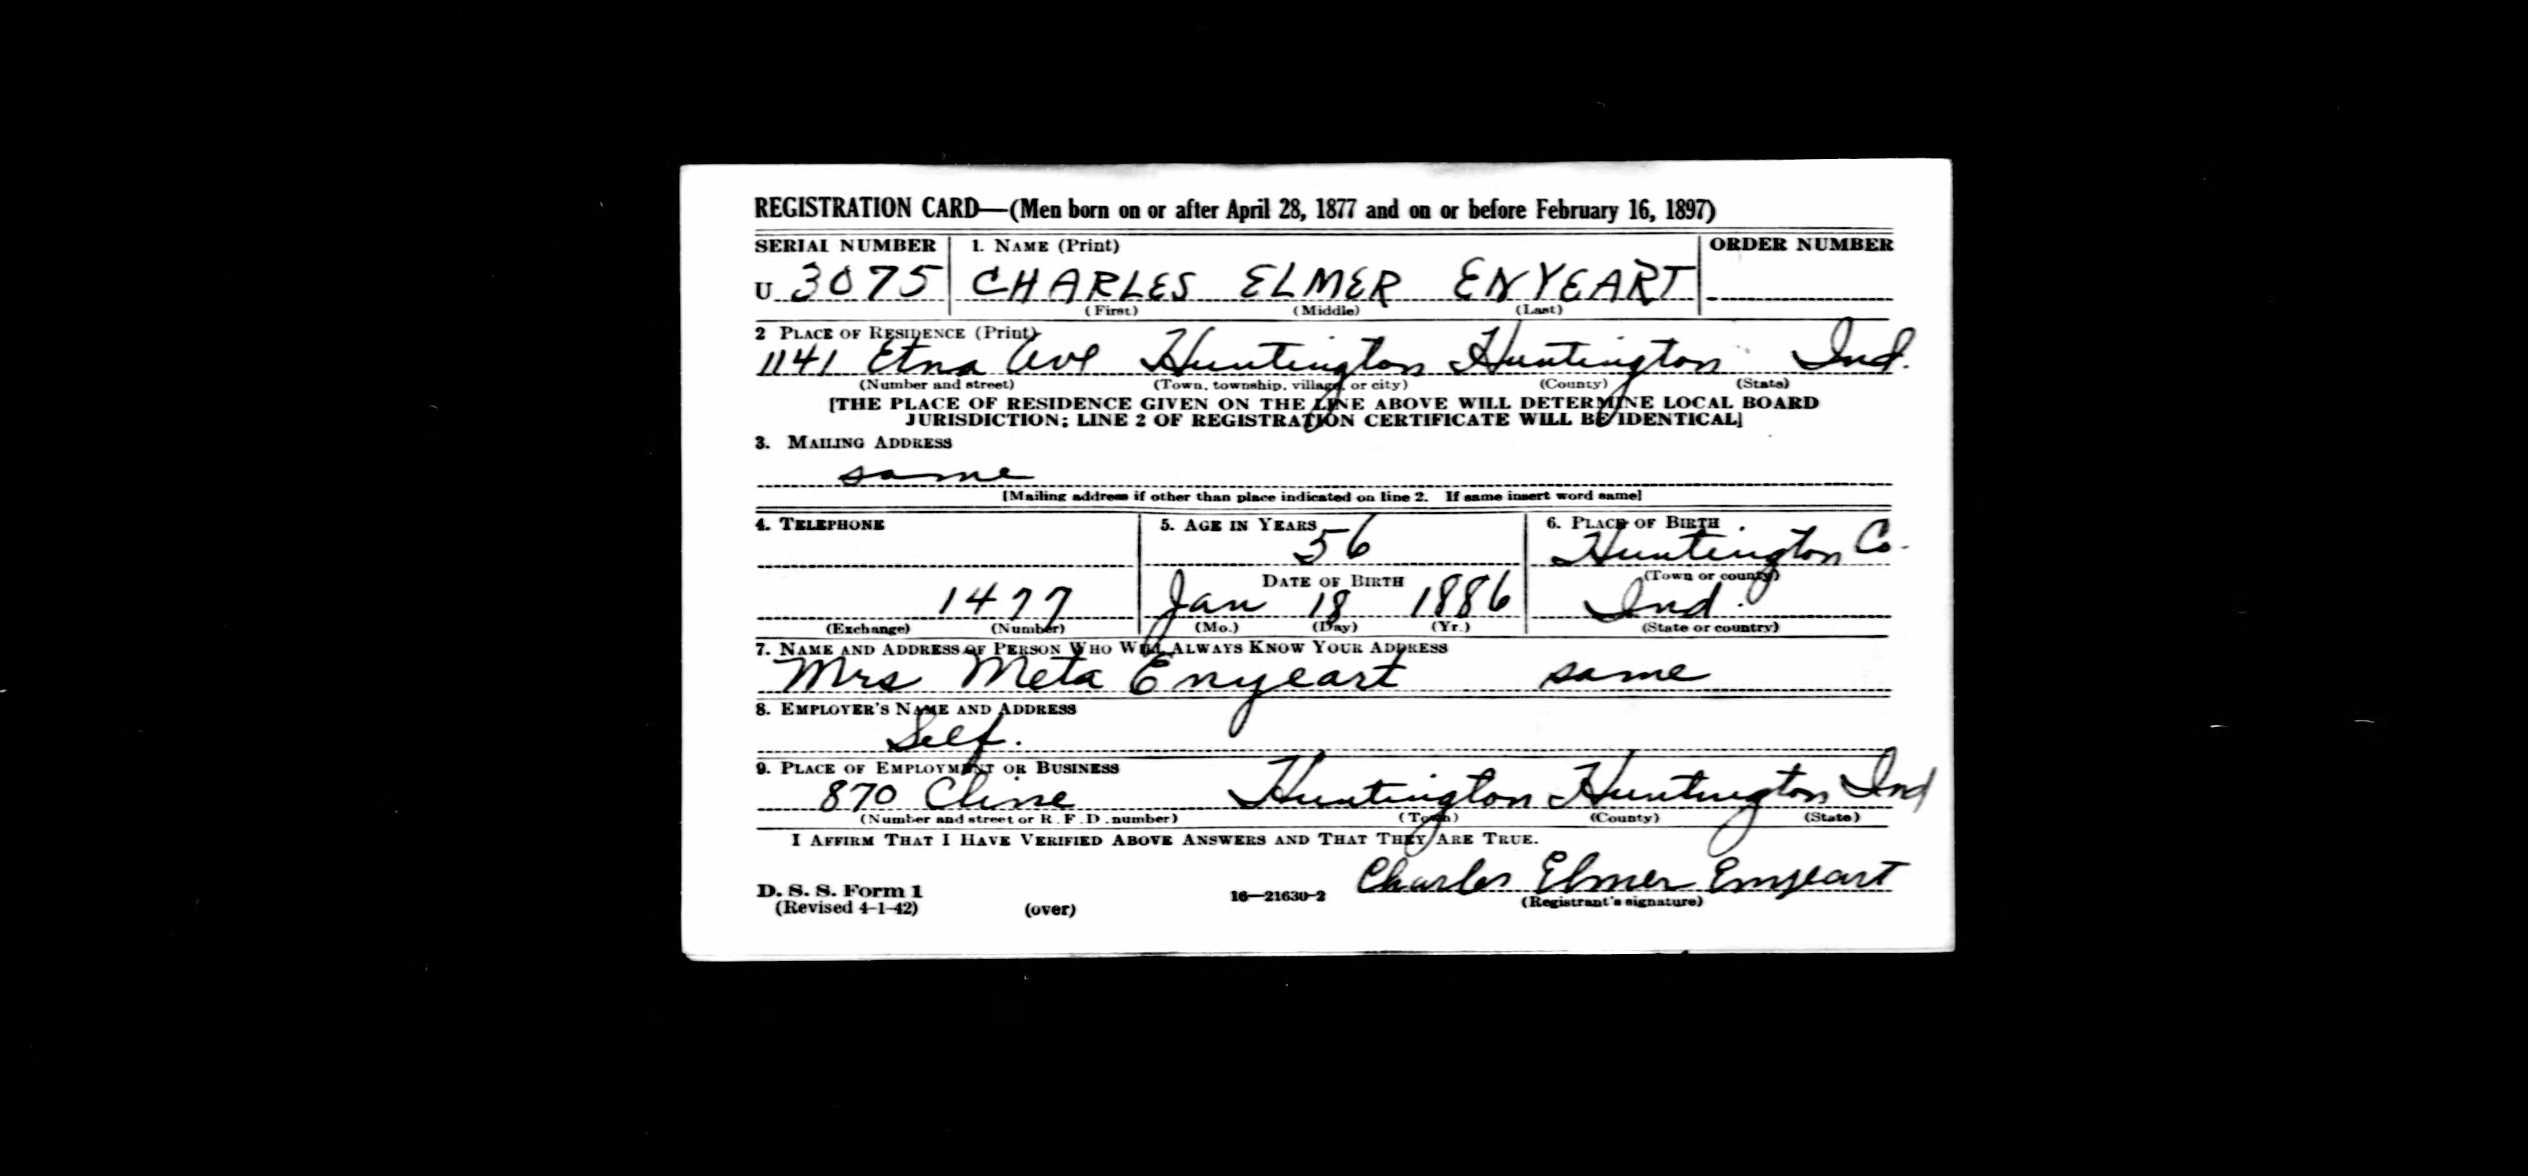 REGISTRATION CARD—(Men born on or after April 28, 1877 and on or before February 16, 1897)
SERIAL NUMBER 1. NAME (Print) ORDER NUMBER
U 3075 CHARLES ELMER ENYEART
(First) (Middle) (Last)
2 PLACE OF RESIDENCE (Print)
1141 Etna Ave Huntington Huntington Ind.
(Number and street) (Town, township, village, or city) (County) (State)
[THE PLACE OF RESIDENCE GIVEN ON THE LINE ABOVE WILL DETERMINE LOCAL BOARD
JURISDICTION; LINE 2 OF REGISTRATION CERTIFICATE WILL BE IDENTICAL]
3. MAILING ADDRESS
same
[Mailing address if other than place indicated on line 2. If same insert word same]
4. TELEPHONE 5. AGE IN YEARS 6. PLACE OF BIRTH
56 Huntington Co.
DATE OF BIRTH (Town or county)
1477 Jan 18 1886 Ind.
(Exchange) (Number) (Mo.) (Day) (Yr.) (State or country)
7. NAME AND ADDRESS OF PERSON WHO WILL ALWAYS KNOW YOUR ADDRESS
Mrs Meta Enyeart same
8. EMPLOYER'S NAME AND ADDRESS
Self.
9. PLACE OF EMPLOYMENT OR BUSINESS
870 Cline Huntington Huntington Ind
(Number and street or R. F. D. number) (Town) (County) (State)
I AFFIRM THAT I HAVE VERIFIED ABOVE ANSWERS AND THAT THEY ARE TRUE.
Charles Elmer Enyeart
D. S. S. Form 1 16—21630-2 (Registrant's signature)
(Revised 4-1-42) (over)